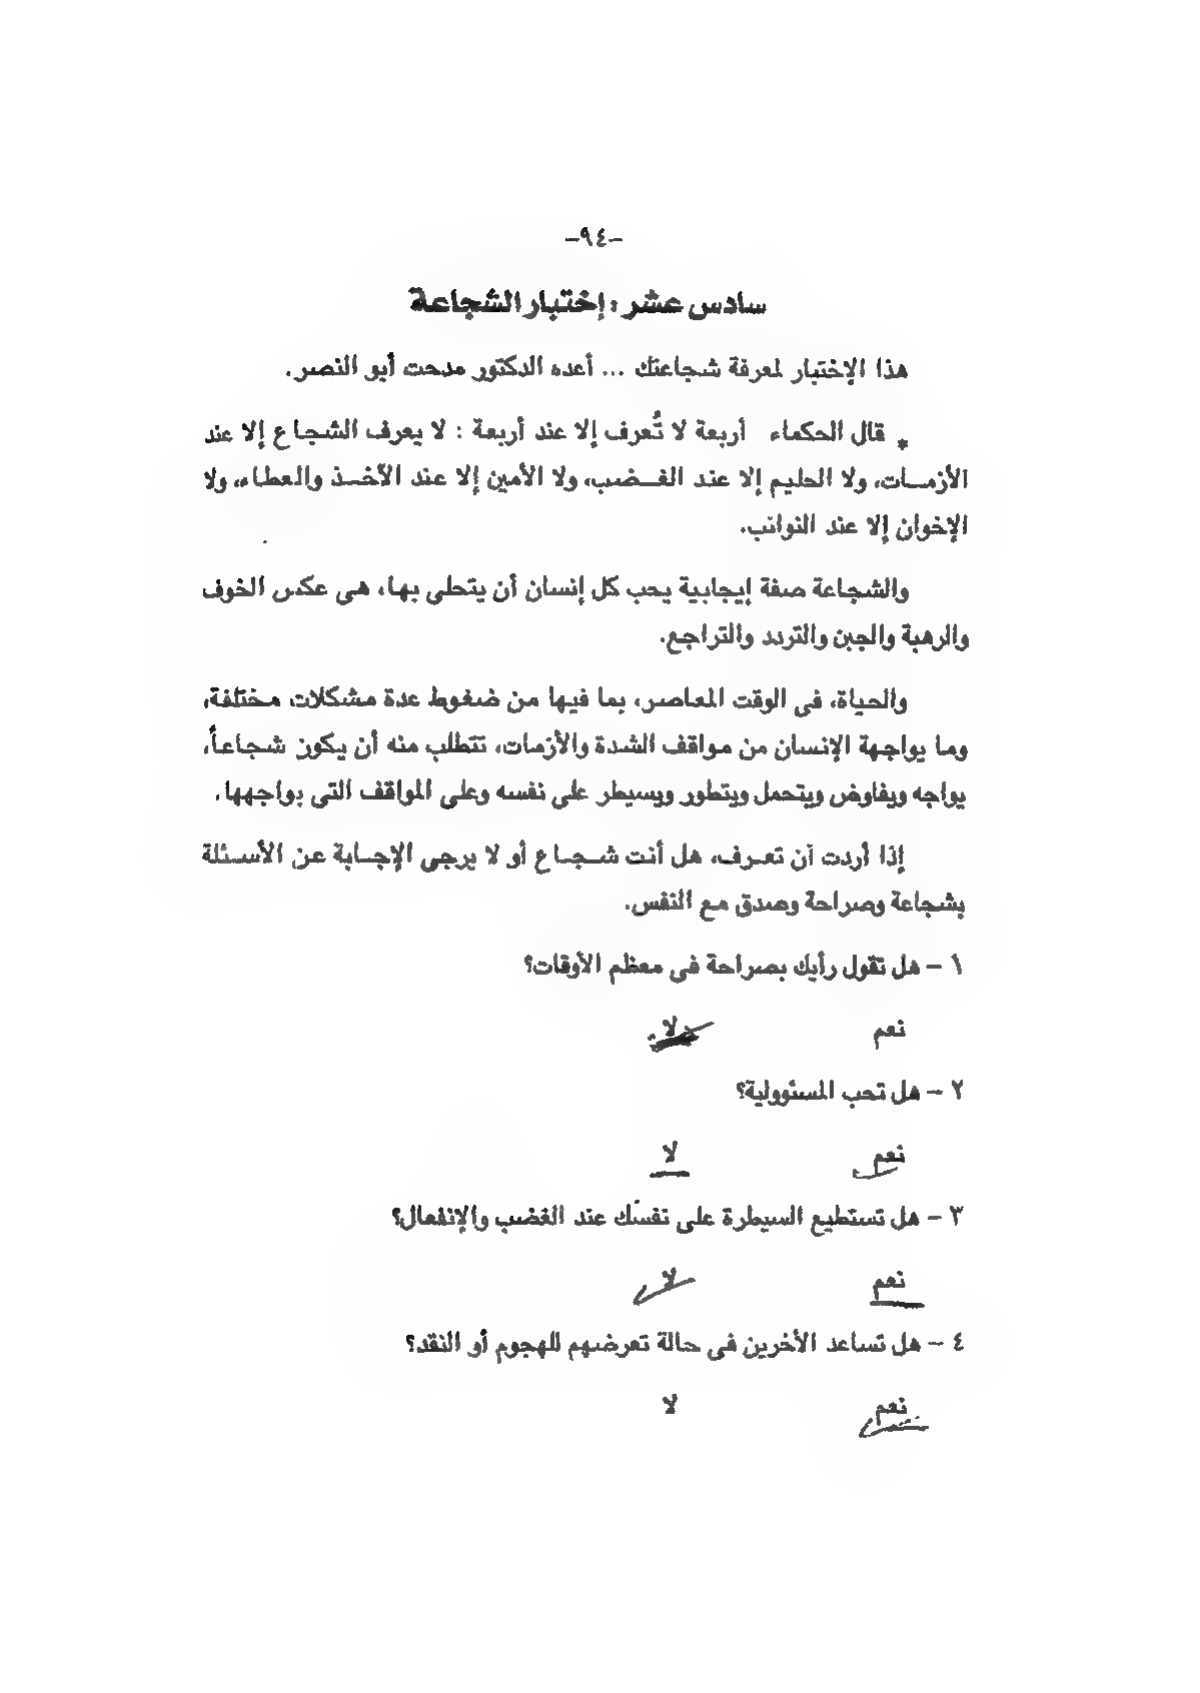 -٩٤-
سادس عشر : إختبار الشجاعة
هذا الإختبار لمعرفة شجاعتك ... أعده الدكتور مدحت أبو النصر.
* قال الحكماء أربعة لا تُعرف إلا عند أربعة : لا يعرف الشجاع إلا عند
الأزمات، ولا الحليم إلا عند الغضب، ولا الأمين إلا عند الأخذ والعطاء، ولا
الإخوان إلا عند النوائب.
والشجاعة صفة إيجابية يحب كل إنسان أن يتحلى بها، هى عكس الخوف
والرهبة والجبن والتردد والتراجع.
والحياة، فى الوقت المعاصر، بما فيها من ضغوط عدة مشكلات مختلفة،
وما يواجهة الإنسان من مواقف الشدة والأزمات، تتطلب منه أن يكون شجاعاً،
يواجه ويفاوض ويتحمل ويتطور ويسيطر على نفسه وعلى المواقف التى يواجهها.
إذا أردت أن تعرف، هل أنت شجاع أو لا يرجى الإجابة عن الأسئلة
بشجاعة وصراحة وصدق مع النفس.
١ - هل تقول رأيك بصراحة فى معظم الأوقات؟
نعم لا
٢ - هل تحب المسئوولية؟
نعم لا
٣ - هل تستطيع السيطرة على نفسك عند الغضب والإنفعال؟
نعم لا
٤ - هل تساعد الأخرين فى حالة تعرضهم للهجوم أو النقد؟
نعم لا